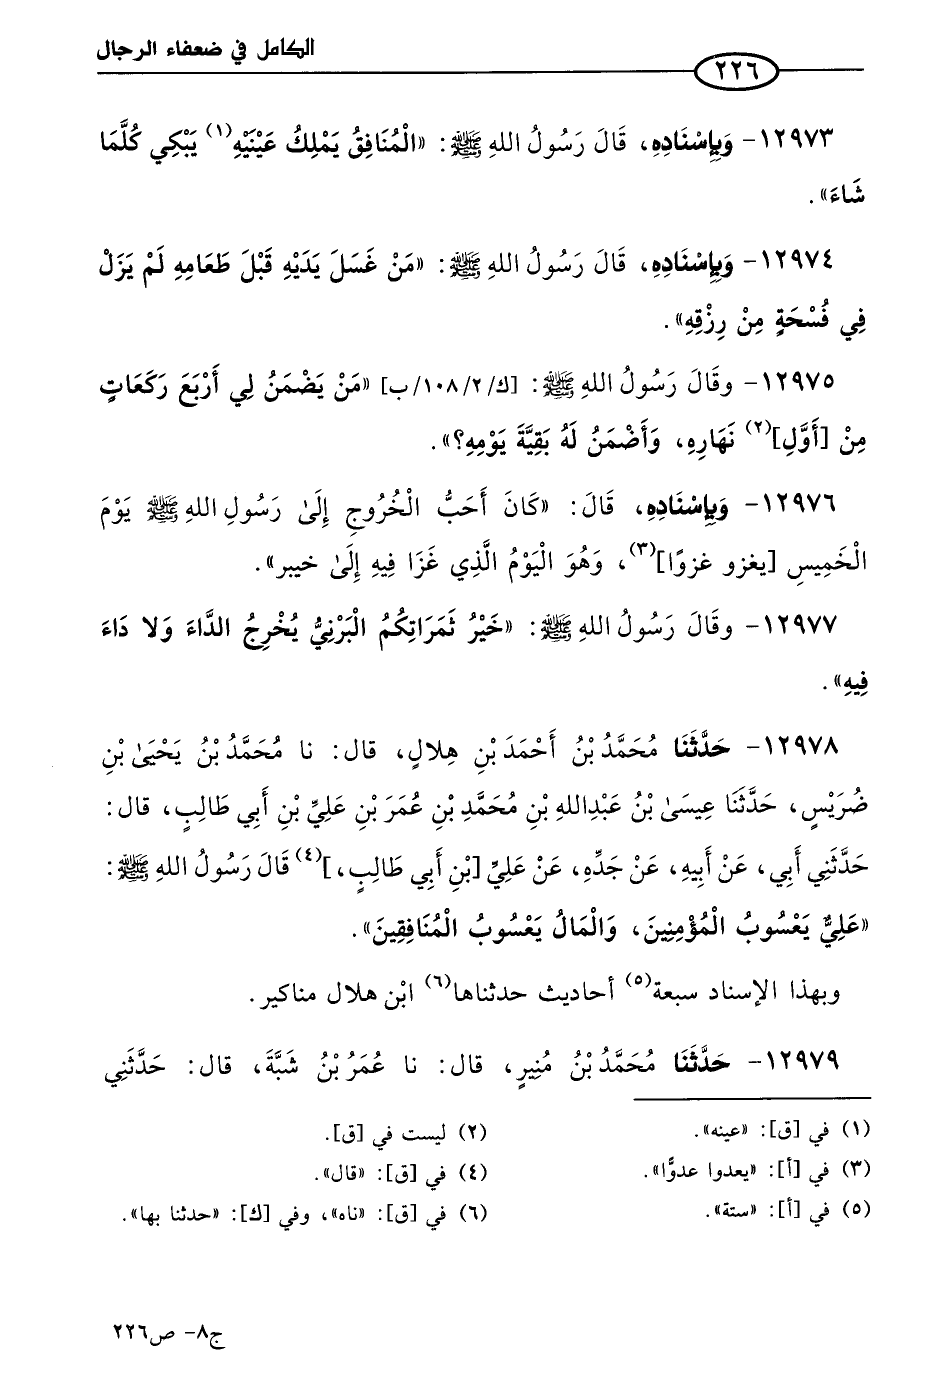 الكامل في ضعفاء الرجال
٢٢٦
١٢٩٧٣- وَبِإِسْنَادِهِ، قَالَ رَسُولُ اللهِ ﷺ: «الْمُنَافِقُ يَمْلِكُ عَيْنَيْهِ(١) يَبْكِي كُلَّمَا
شَاءَ».
١٢٩٧٤- وَبِإِسْنَادِهِ، قَالَ رَسُولُ اللهِ ﷺ: «مَنْ غَسَلَ يَدَيْهِ قَبْلَ طَعَامِهِ لَمْ يَزَلْ
فِي فُسْحَةٍ مِنْ رِزْقِهِ».
١٢٩٧٥- وقَالَ رَسُولُ اللهِ ﷺ: [ك/١٠٨/٢/ب] «مَنْ يَضْمَنُ لِي أَرْبَعَ رَكَعَاتٍ
مِنْ [أَوَّلِ](٢) نَهَارِهِ، وَأَضْمَنُ لَهُ بَقِيَّةَ يَوْمِهِ؟».
١٢٩٧٦- وَبِإِسْنَادِهِ، قَالَ: «كَانَ أَحَبُّ الْخُرُوجِ إِلَىٰ رَسُولِ اللهِ ﷺ يَوْمَ
الْخَمِيسِ [يغزو غزوًا](٣)، وَهُوَ الْيَوْمُ الَّذِي غَزَا فِيهِ إِلَىٰ خيبر».
١٢٩٧٧- وقَالَ رَسُولُ اللهِ ﷺ: «خَيْرُ ثَمَرَاتِكُمُ الْبَرْنِيُّ يُخْرِجُ الدَّاءَ وَلا دَاءَ
فِيهِ».
١٢٩٧٨- حَدَّثَنَا مُحَمَّدُ بْنُ أَحْمَدَ بْنِ هِلالٍ، قال: نا مُحَمَّدُ بْنُ يَحْيَىٰ بْنِ
ضُرَيْسٍ، حَدَّثَنَا عِيسَىٰ بْنُ عَبْدِاللهِ بْنِ مُحَمَّدِ بْنِ عُمَرَ بْنِ عَلِيِّ بْنِ أَبِي طَالِبٍ، قال:
حَدَّثَنِي أَبِي، عَنْ أَبِيهِ، عَنْ جَدِّهِ، عَنْ عَلِيِّ [بْنِ أَبِي طَالِبٍ،](٤) قَالَ رَسُولُ اللهِ ﷺ:
«عَلِيٌّ يَعْسُوبُ الْمُؤْمِنِينَ، وَالْمَالُ يَعْسُوبُ الْمُنَافِقِينَ».
وبهذا الإسناد سبعة(٥) أحاديث حدثناها(٦) ابْن هلال مناكير.
١٢٩٧٩- حَدَّثَنَا مُحَمَّدُ بْنُ مُنِيرٍ، قال: نا عُمَرُ بْنُ شَبَّةَ، قال: حَدَّثَنِي
(١) في [ق]: «عينه».
(٢) ليست في [ق].
(٣) في [أ]: «يعدوا عدوًّا».
(٤) في [ق]: «قال».
(٥) في [أ]: «ستة».
(٦) في [ق]: «ناه»، وفي [ك]: «حدثنا بها».
ج٨- ص٢٢٦